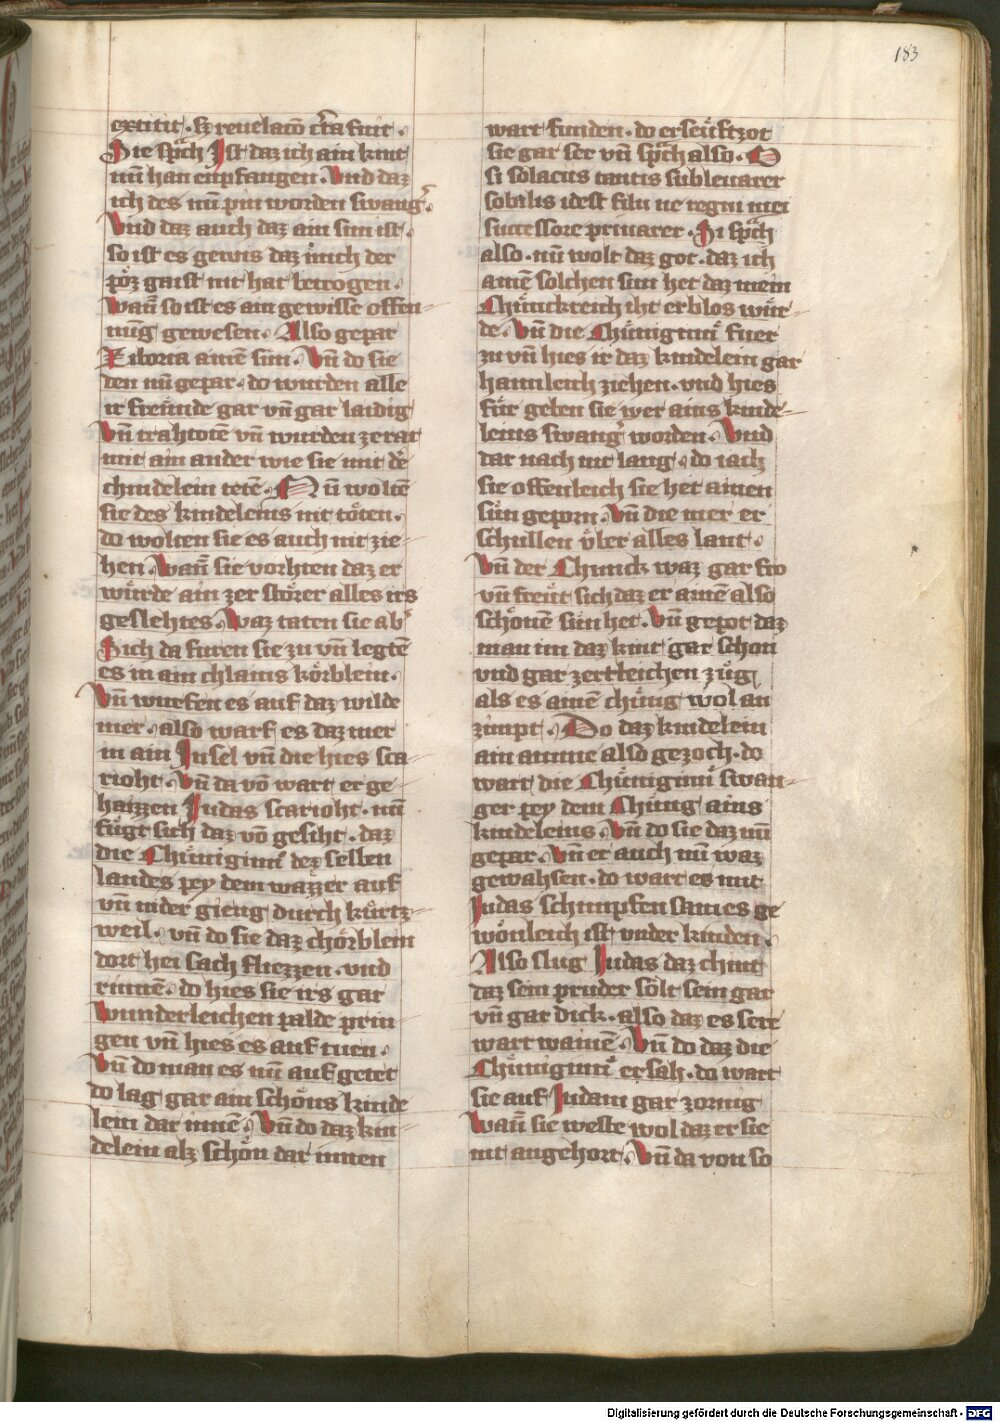 183
extitit · sz reuelacō cāta fuit ·
Sie spͣch Ist daz ich ain kint
nū han enpfangen · Vnd daz
ich des nū pin worden swangͥ ·
Vnd daz auch daz ain sun ist ·
so ist es gewis daz mich der
pöz gaist nit hat betrogen ·
Wan̄ so ist es ain gewisse offen
nūg gewesen · Also gepar
Ciboria ainē sun · Vn̄ do sie
den nū gepar · do wurden alle
ir freünde gar vn̄ gar laidig
Vn̄ trahtotē vn̄ wurden zerat
mit ain ander wie sie mit dē
chindelein tetē · Nū woltē
sie des kindeleins nit töten ·
do wolten sie es auch nit zie
hen · Wan̄ sie vorhten daz er
würde ain zer störer alles irs
geslehtes · Waz taten sie abͥ
Sich da furen sie zu vn̄ legtē
es in ain chlains körblein ·
Vn̄ wurfen es auf daz wilde
mer · also warf es daz mer
in ain Insel vn̄ die hies sca
rioht · Vn̄ da vō wart er ge
haizzen Judas scarioht · nū
fügt sich daz vō gesiht · daz
die Chüniginī dez selben
landes pey dem wazzer auf
vn̄ nider gieng durch kürtz
weil · vn̄ do sie daz chörblein
dort hei sach fliezzen · vnd
rinnē · do hies sie irs gar
wunderleichen palde prin
gen vn̄ hies es auf tuen ·
Vn̄ do man es nū auf getet
do lag gar ain schöns kinde
lein dar innē · Vn̄ do daz kin
delein alz schön dar innen
wart funden · do erseüftzot
sie gar ser vn̄ spͣch also · O
si solacus tantis subleuarer
sobilis idest filii ne regni mei
successore priuarer · Si spͣch
also · nū wolt daz got · daz ich
ainē solchen sun het daz mein
Chünckreich iht erblos wür
de · Vn̄ die Chüniginī fuer
zu vn̄ hies ir daz kindelein gar
haimleich ziehen · vnd hies
für geben sie wer ains kinde
leins swangͥ worden · Vnd
dar nach nit lang · do iach
sie offenleich sie het ainen
sün geporn · Vn̄ die mer er
schullen v̈ber alles lant ·
Vn̄ der Chunck waz gar fro
vn̄ freüt sich daz er ainē also
schönē sun het · Vn̄ gepot daz
man im daz kint gar schon
vnd gar zertleichen züg
als es ainē chüng wol an
zimpt · Do daz kindelein
ain amme also gezoch · do
wart die Chüniginī swan
ger pey dem Chüng ains
kindeleins · Vn̄ do sie daz nū
gepar · Vn̄ er auch nū waz
gewahsen · do wart es mit
Judas schimpfen sam es ge
wönleich ist vnder kinden ·
Also slug Judas daz chint
daz sein pruder sölt sein gar
vn̄ gar dick · also daz es sere
wart wainē · Vn̄ do daz die
Chüniginī ersah · do wart
sie auf Judam gar zornig
Wan̄ sie weste wol daz er sie
nit angehort · Vn̄ da von so
Digitalisierung gefördert durch die Deutsche Forschungsgemeinschaft - DFG